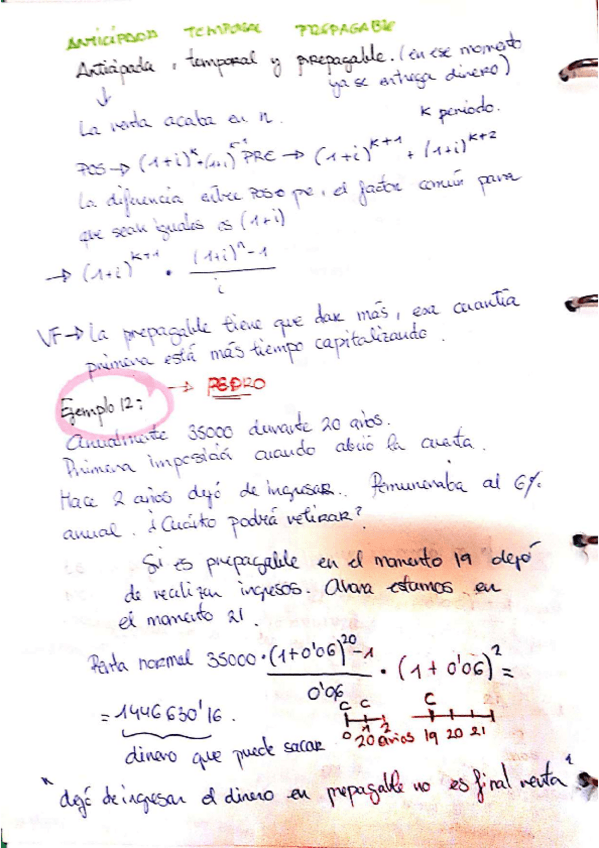 ANTICIPADA TEMPORAL PREPAGABLE
Anticipada, temporal y prepagable. (en ese momento
ya se entrega dinero)
↓
La renta acaba en n.
k periodo.
POS → (1+i)^k + (1+i)^k-1 PRE → (1+i)^k+1 + (1+i)^k+2
La diferencia entre pos o pre, el factor común para
que sean iguales es (1+i)
→ (1+i)^k+1 · ((1+i)^n - 1) / i
VF → La prepagable tiene que dar más, esa cuantía
primera está más tiempo capitalizando.
Ejemplo 12: → PEDRO
Anualmente 35000 durante 20 años.
Primera imposición cuando abrió la cuenta.
Hace 2 años dejó de ingresar. Remuneraba al 6%
anual. ¿Cuánto podrá retirar?
Si es prepagable en el momento 19 dejó
de realizar ingresos. Ahora estamos en
el momento 21.
Renta normal 35000 · ((1+0'06)^20 - 1) / 0'06 · (1+0'06)^2 =
= 1446630'16.
C C
0 1 2
20 años
C
19 20 21
dinero que puede sacar
"dejó de ingresar el dinero en prepagable no es final renta"